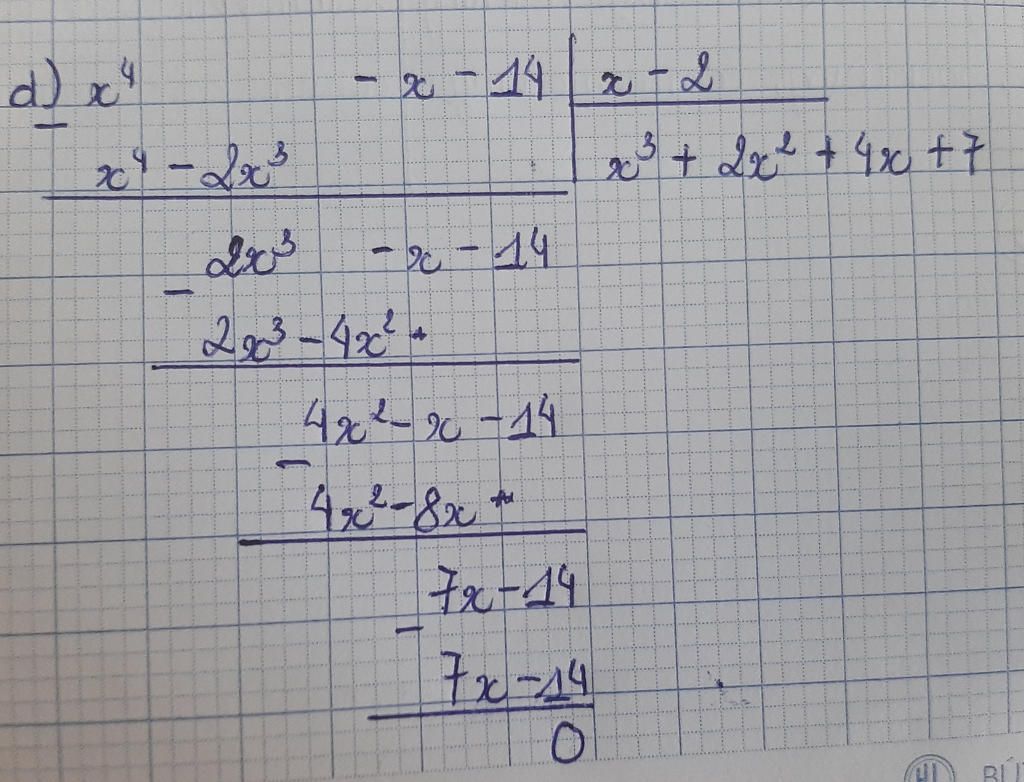 d) x⁴ - x - 14 | x - 2
x⁴ - 2x³ | x³ + 2x² + 4x + 7
2x³ - x - 14
2x³ - 4x²
4x² - x - 14
4x² - 8x
7x - 14
7x - 14
0